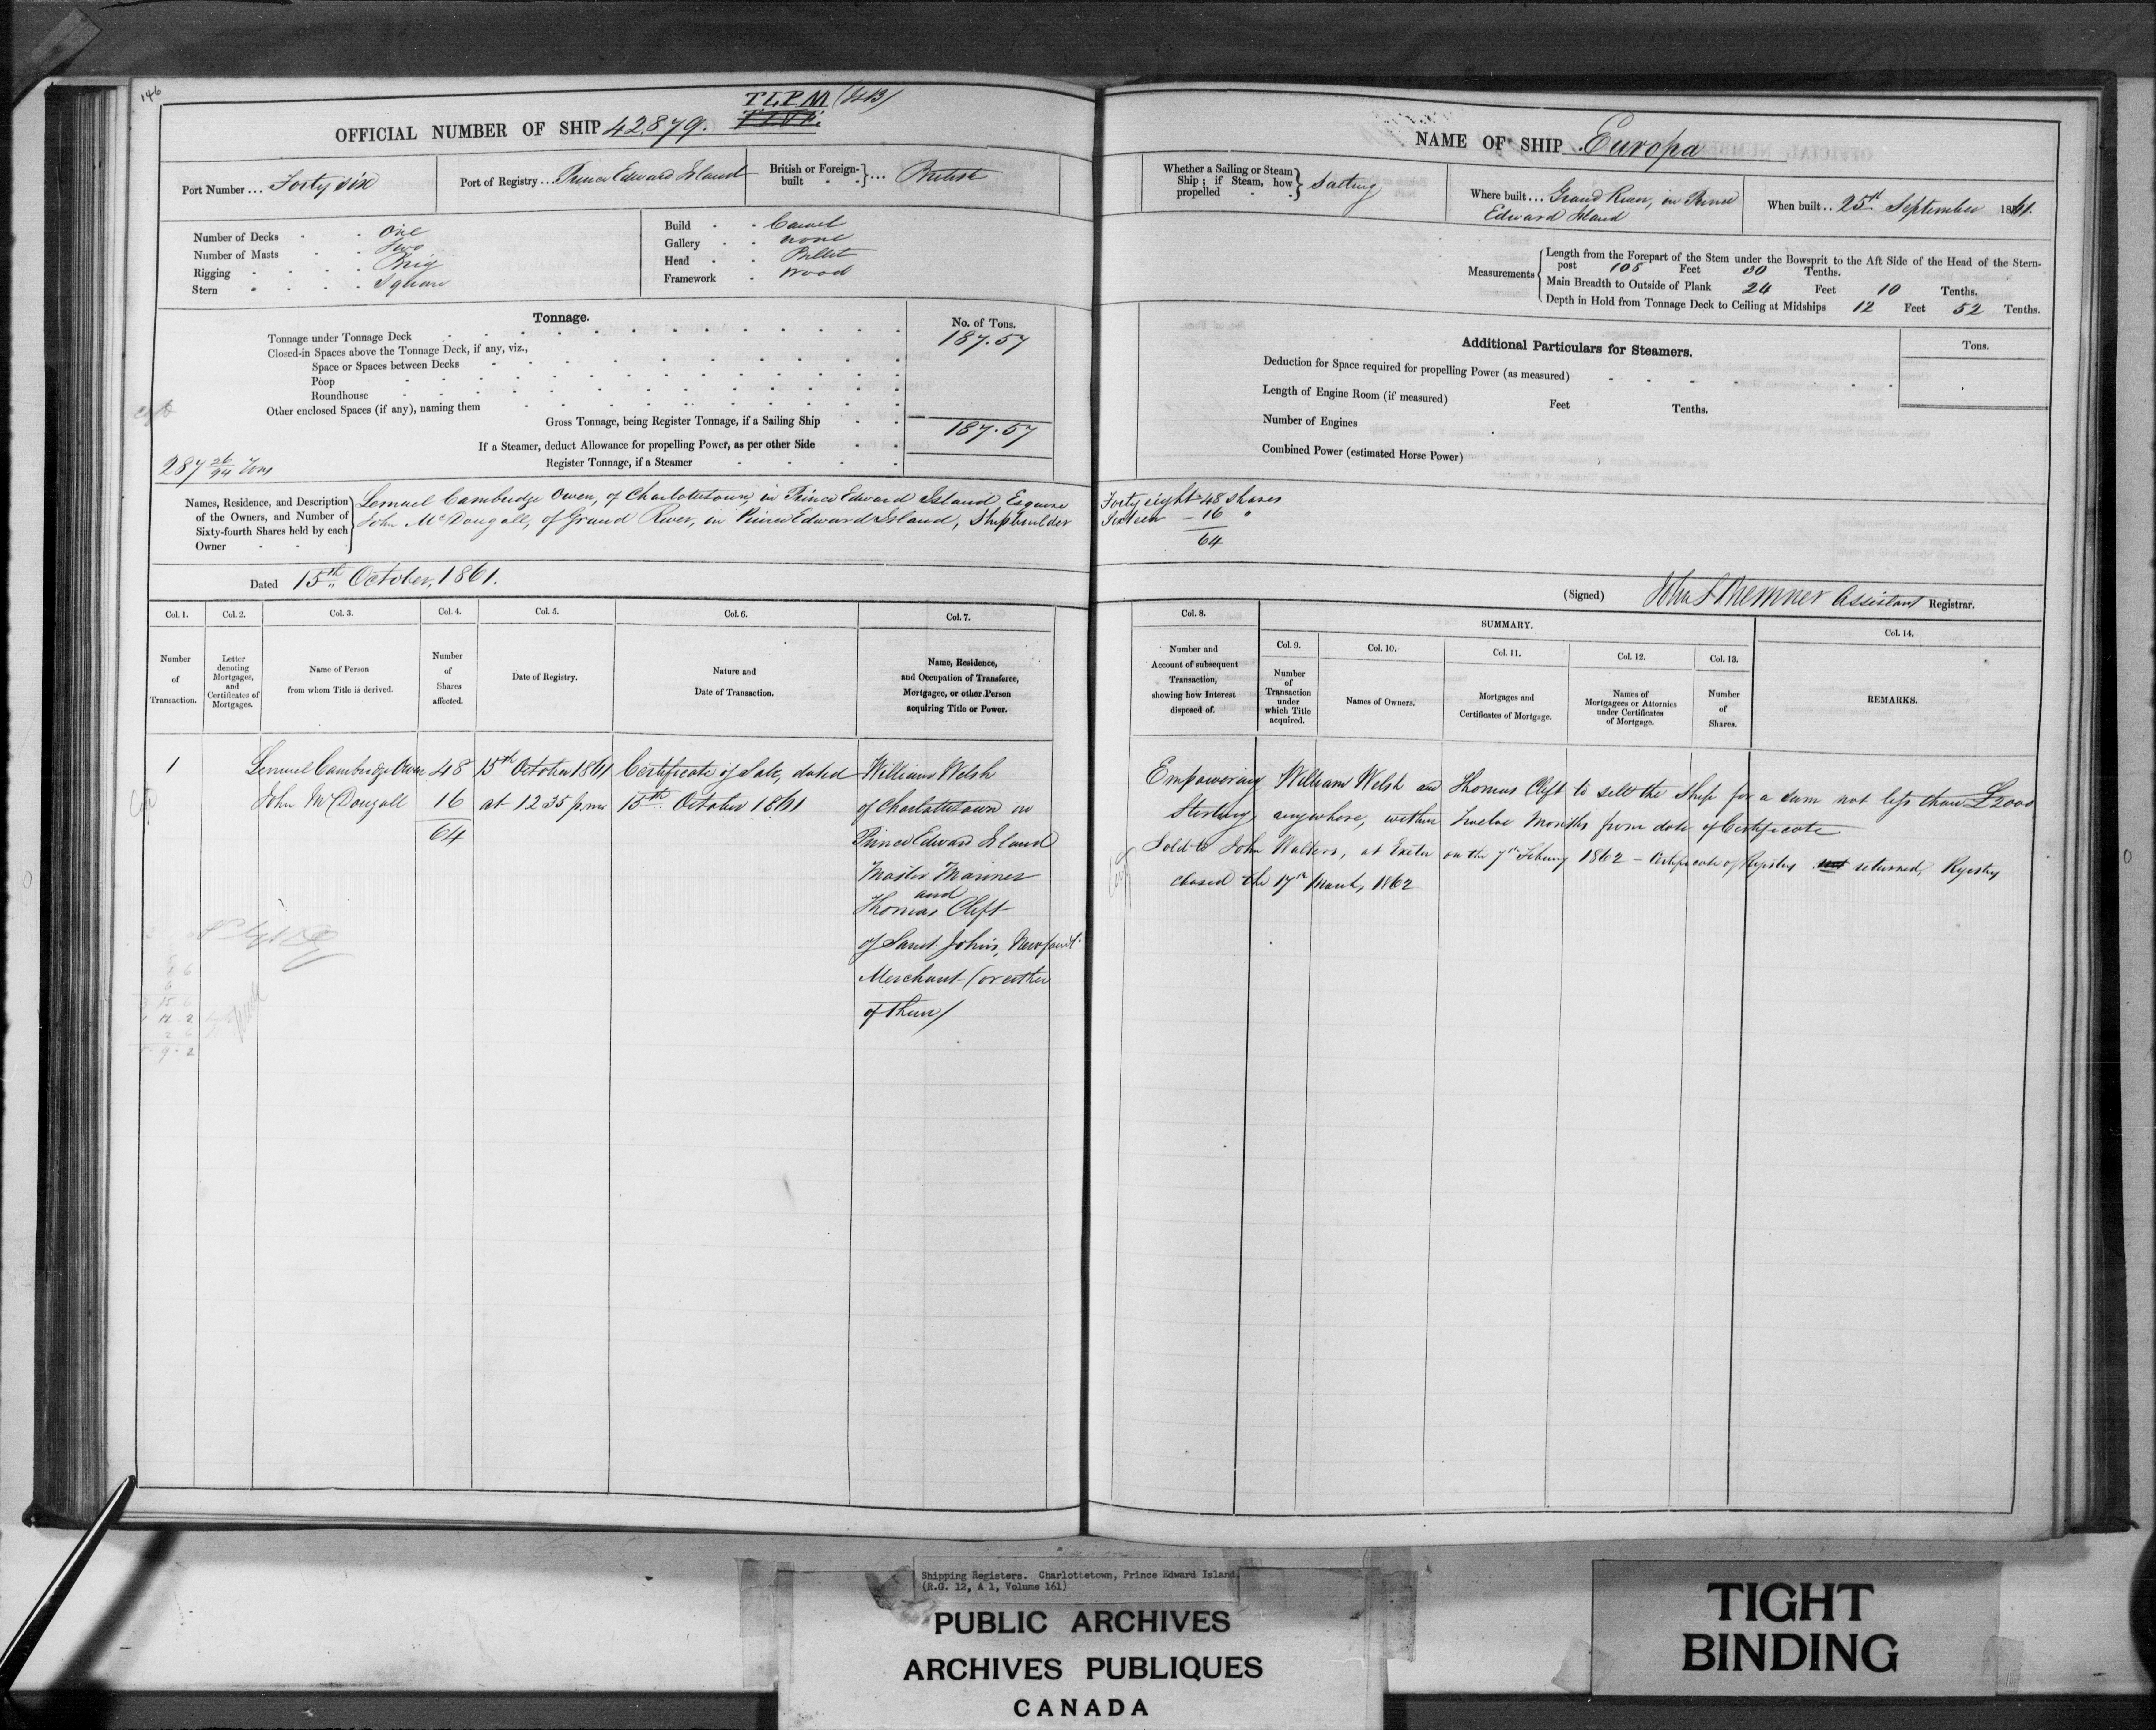 146
TLPM
OFFICIAL NUMBER OF SHIP 42.879.
Port Number... Forty six
Port of Registry... Prince Edward Island
British or Foreign-built }... British
Number of Decks - - One
Number of Masts - - Two
Rigging - - - - Brig
Stern - - - - Square
Build - - Carvel
Gallery - - none
Head - - Billet
Framework - Wood
Tonnage.
No. of Tons.
Tonnage under Tonnage Deck 187.57
Closed-in Spaces above the Tonnage Deck, if any, viz.,
Space or Spaces between Decks
Poop
Roundhouse
Other enclosed Spaces (if any), naming them
Gross Tonnage, being Register Tonnage, if a Sailing Ship 187.57
If a Steamer, deduct Allowance for propelling Power, as per other Side
Register Tonnage, if a Steamer
287 26/94 Tons
Names, Residence, and Description of the Owners, and Number of Sixty-fourth Shares held by each Owner
Lemuel Cambridge Owen, of Charlottetown, in Prince Edward Island, Esquire
John McDougall, of Grand River, in Prince Edward Island, Shipbuilder
Dated 15th October, 1861.
Col. 1. Col. 2. Col. 3. Col. 4. Col. 5. Col. 6. Col. 7.
Number of Transaction.
Letter denoting Mortgages, and Certificates of Mortgages.
Name of Person from whom Title is derived.
Number of Shares affected.
Date of Registry.
Nature and Date of Transaction.
Name, Residence, and Occupation of Transferee, Mortgagee, or other Person acquiring Title or Power.
1 Lemuel Cambridge Owen 48 15th October 1861 Certificate of Sale, dated William Welsh
John McDougall 16 at 12 35 p.m. 15th October 1861 of Charlottetown in
64 Prince Edward Island
Master Mariner
and
Thomas Clift
of Saint Johns, Newfound
Merchant (or either
of them)
NAME OF SHIP Europa
Whether a Sailing or Steam Ship; if Steam, how propelled } Sailing
Where built... Grand River, in Prince
Edward Island
When built.. 25th September 1861.
Measurements
Length from the Forepart of the Stem under the Bowsprit to the Aft Side of the Head of the Stern-
post 108 Feet 30 Tenths.
Main Breadth to Outside of Plank 24 Feet 10 Tenths.
Depth in Hold from Tonnage Deck to Ceiling at Midships 12 Feet 52 Tenths.
Additional Particulars for Steamers.
Tons.
Deduction for Space required for propelling Power (as measured)
Length of Engine Room (if measured) Feet Tenths.
Number of Engines
Combined Power (estimated Horse Power)
Forty eight 48 Shares
Sixteen - 16 "
64
(Signed) Assistant Registrar.
Col. 8. SUMMARY. Col. 14.
Col. 9. Col. 10. Col. 11. Col. 12. Col. 13.
Number and Account of subsequent Transaction, showing how Interest disposed of.
Number of Transaction under which Title acquired.
Names of Owners.
Mortgages and Certificates of Mortgage.
Names of Mortgagees or Attornies under Certificates of Mortgage.
Number of Shares.
REMARKS.
Empowering William Welsh and Thomas Clift to sell the Ship for a sum not less than £2000
Sterling, anywhere, within Twelve Months from date of Certificate
Sold to John Walters, at Exeter on the 7th Febury 1862 - Certificate of Registry not returned, Registry
closed the 17th March, 1862
Shipping Registers. Charlottetown, Prince Edward Island.
(R.G. 12, A 1, Volume 161)
PUBLIC ARCHIVES
ARCHIVES PUBLIQUES
CANADA
TIGHT
BINDING